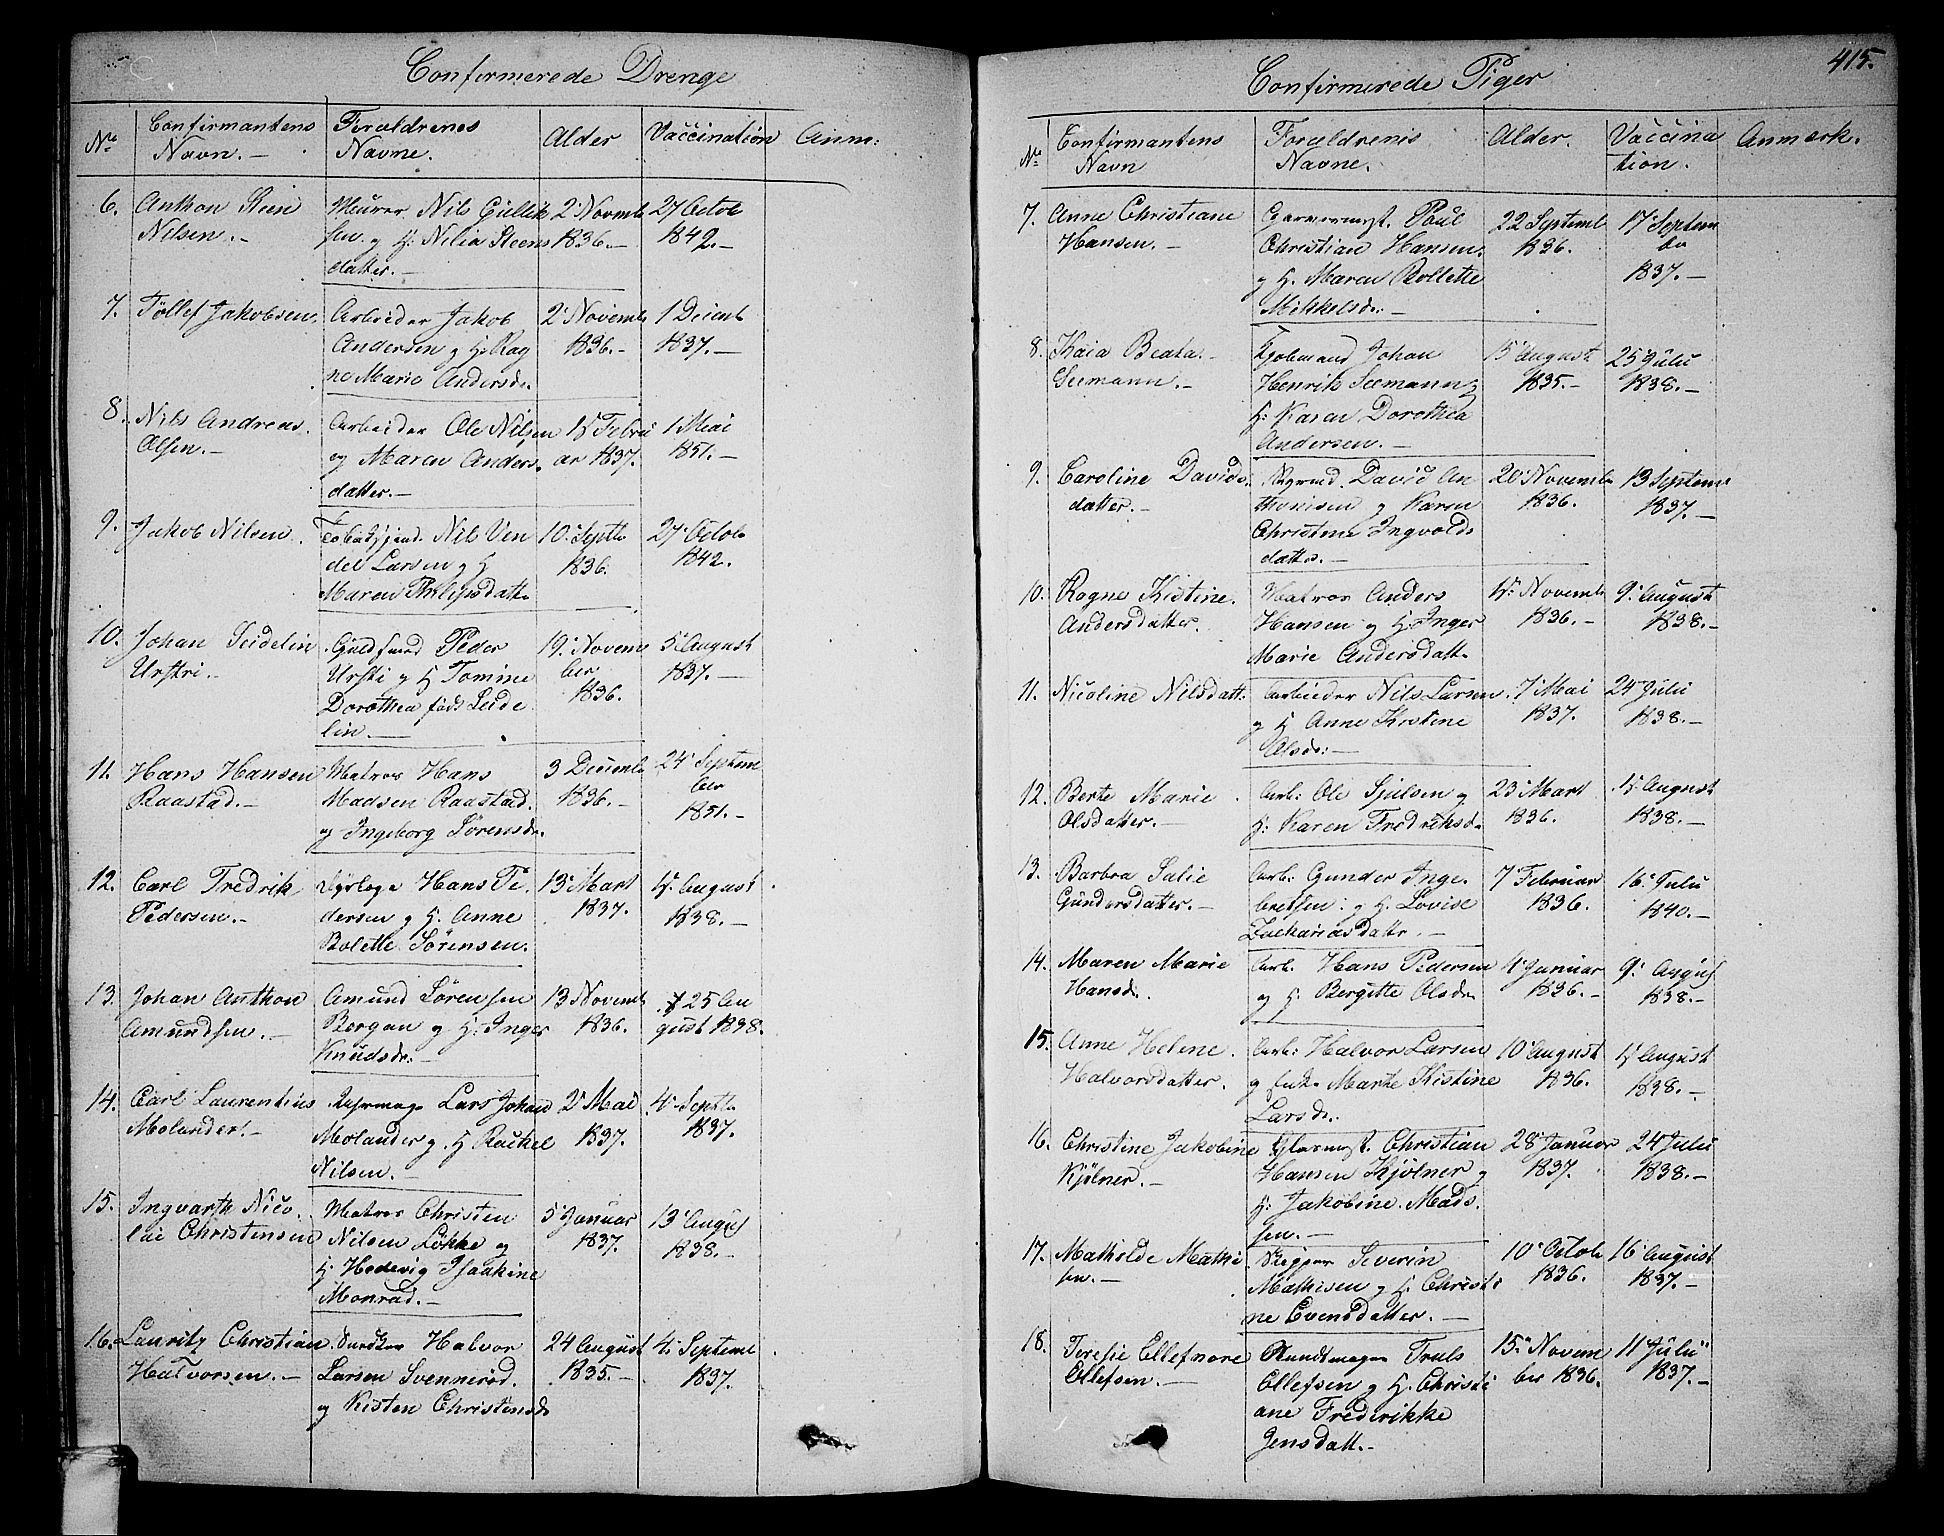 Confirmerede Drenge
No
Confirmantens
Navn.-
Forældrenes
Navne.
Alder
Vaccination
Anm:
6.
Anthon Steen
Nilsen.-
Meurer Nils Gullik
sen. og H. Nilia Steens
datter.-
2' Novemb
1836.-
27 Octob
1842.-
7.
Tollef Jakobsen.
Arbeider Jakob
Andersen og H. Rag
ne Marie Andersd.
2' Novemb
1836.-
1 Decemb
1837.-
8.
Nils Andreas
Olsen.-
Arbeider Ole Nilsen
og Maren Anders.
datter.-
15 Febru
ar 1837.
1 Mai
1851.-
9.
Jakob Nilsen
Nils Ven
del Larsen og H
Maren Philipsdatt.
10' Septb
1836.
27 Octob
1842.
10.
Johan Seidelin
Urstri.-
Guldsmed Peder
Ursti og H Tomine
Dorothea föd: Seide
lin.-
19' Novem
ber
1836.
5' August
1837.-
11.
Hans Hansen
Raastad.-
Matros Hans
Madsen Raastad.
og Ingeborg Sörensd.
3 Decemb
1836.-
24' Septem
ber
1851.-
12.
Carl Fredrik
Pedersen.-
Dyrlæge Hans Pe
dersen og H. Anne
Bolette Sörensen.
13' Mart
1837.
15' August
1838.-
13.
Johan Anthon
Amundsen.-
Amund Sörensen
Bergan og H. Inger
Knudsd:-
13 Novemb
1836.
25 Au
gust 1838.
14.
Carl Laurentius
Molander.-
Lars Johan
Molander og H Rachel
Nilsen.-
2' Mai
1837.
4' Septb
1837.
15.
Ingvarth Nico
lai Christensen
Matros Christen
Nilsen Lökke og
H Hedevig Isaakine
Monrad.-
5' Januar
1837.
13' Augus
1838.-
16.
Lauritz Christian
Halvorsen.-
Halvor
Larsen Svenneröd.
og Kisten Christensd
24 August
1835.-
4' Septemb
1837.
415.
Confirmerede Piger
No
Confirmantens
Navn
Forældrenes
Navne.
Alder.
Vaccina
tion.
Anmærk.
7.
Anne Christiane
Hansen.-
Garvermst. Poul
Christian Hansen
og H. Maren Bollette
Mikkelsd.-
22 Septemb
1836.
17' Septem
ber
1837.-
8.
Kaia Beata
Seemann.-
Kjobmand Johan
Henrik Seemann og
H: Karen Dorothea
Andersen.-
15' August
1835.-
25' Juli
1838.-
9.
Caroline Davids
datter.-
David An
thonisen og Karen
Christine Ingvolds
datter.-
20' Novemb
1836.
13 Septem
1837.-
10.
Ragne Kistine
Andersdatter.
Matros Anders
Hansen og H. Inger
Marie Andersdatt.
15' Novemb
1836.-
9' August
1838.-
11.
Nicoline Nilsdatt.
Arbeider Nils Larsen
og H Anne Kistine
Olsd:-
7' Mai
1837.
24' Juli
1838.-
12.
Berte Marie
Olsdatter.-
Arb: Ole Sjulsen og
H: Karen Fredriksd.
23' Mart
1836.
15' August
1838.-
13.
Barbra Julie
Gundersdatter.-
Arb: Gunder Inge.
bretsen: og H. Lovise
Zachariasdattr.-
7' Februar
1836.
16' Juli
1840.-
14.
Maren Marie
Hansd.
Arb. Hans Pedersen
og H. Bergitte Olsd.
4' Januar
1836.-
9' Augus
1838.-
15.
Anne Helene
Halvorsdatter.
Arb: Halvor Larsen
og Marthe Kistine
Larsd.
10' August
1836.
15' August
1838.-
16.
Christine Jakobine
Kjölner.-
Glarmest. Christian
Hansen Kjölner og
H: Jakobine Mads.
sen.-
28' Januar
1837.
24' Juli
1838.-
17.
Mathilde Mathi
sen.-
Skipper Severin
Mathisen og H. Christi
ne Evensdatter.-
10' Octob
1836.
16' August
1837.-
18.
Teresie Ellefnore
Ellefsen.-
Truls
Ellefsen og H. Christi
ane Frederikke
Jensdatt.-
15' Novem
ber 1836.
11' Juli
1837.-